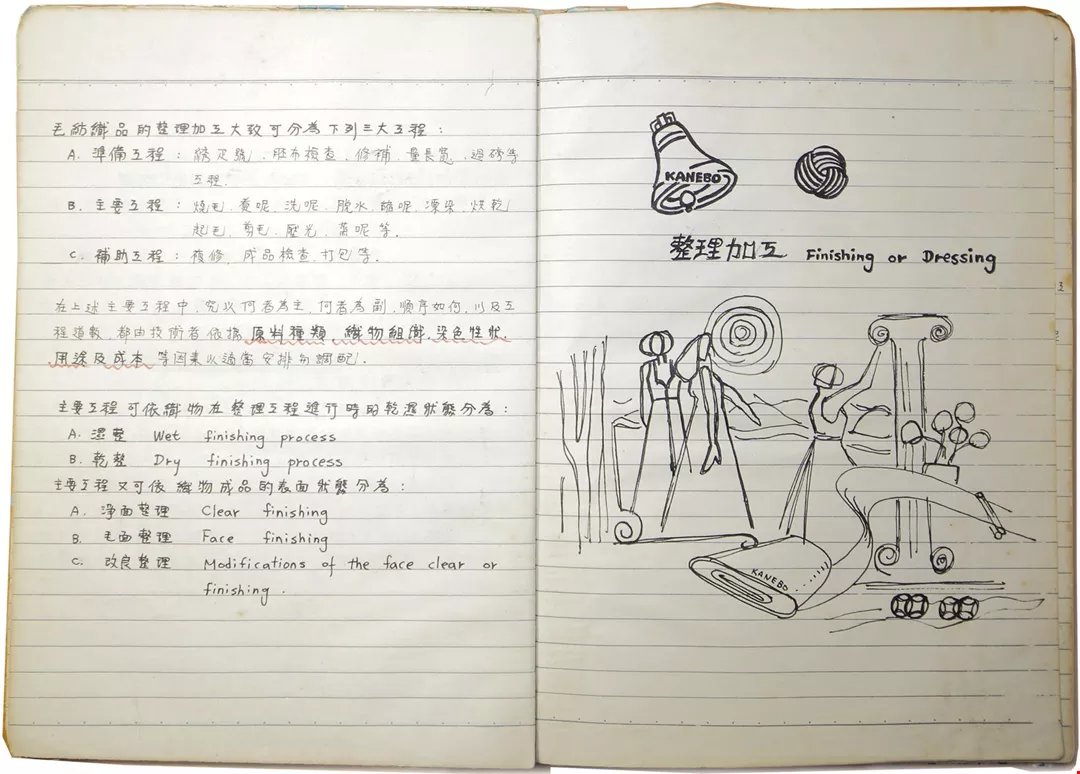 毛紡織品的整理加工大致可分為下列三大工程：
A. 準備工程：繡疋號．胚布檢查．修補．量長寬．過磅等
工程．
B. 主要工程：燒毛．煮呢．洗呢．脫水．縮呢．漂染．烘乾
起毛．剪毛．壓光．蒸呢等．
C. 補助工程：複修．成品檢查．打包等．
在上述主要工程中．究以何者為主．何者為副．順序如何．以及工
程道數．都由技術者依據原料種類．織物組織．染色性狀．
用途及成本．等因素以適當安排和調配．
主要工程可依織物在整理工程進行時的乾濕狀態分為：
A. 濕整 Wet finishing process
B. 乾整 Dry finishing process
主要工程又可依織物成品的表面狀態分為：
A. 淨面整理 Clear finishing
B. 毛面整理 Face finishing
C. 改良整理 Modifications of the face clear or
finishing .
KANEBO
整理加工 Finishing or Dressing
KANEBO